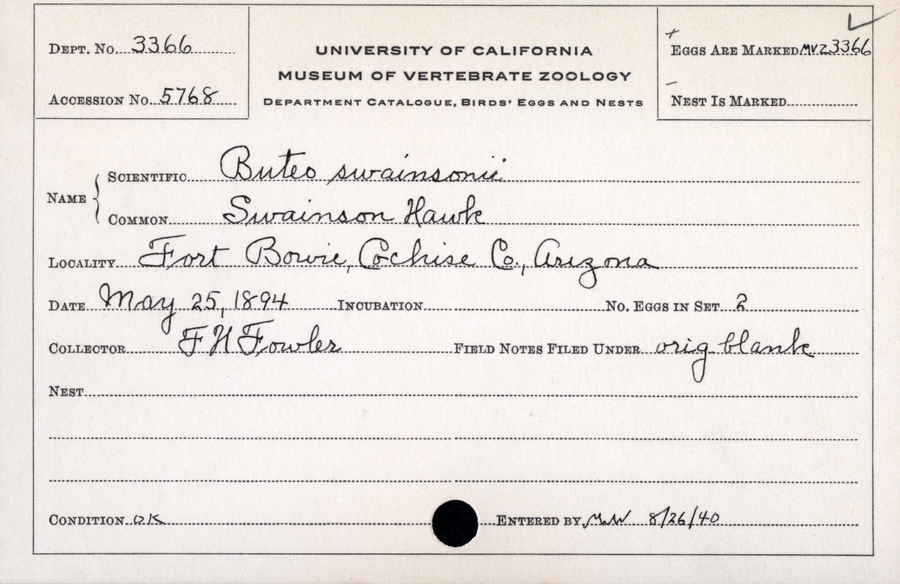 Dept. No. 3366
Accession No. 5768
UNIVERSITY OF CALIFORNIA
MUSEUM OF VERTEBRATE ZOOLOGY
Department Catalogue, Birds' Eggs and Nests
+ Eggs Are Marked MVZ 3366 ✓
– Nest Is Marked
Name { Scientific Buteo swainsonii
Common Swainson Hawk
Locality Fort Bowie, Cochise Co., Arizona
Date May 25, 1894 Incubation No. Eggs in Set 2
Collector F H Fowler Field Notes Filed Under orig blank
Nest
Condition OK Entered by MW 8/26/40